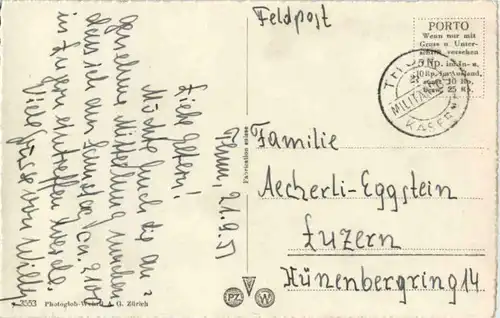 Thun, 21.9.51
Liebe Eltern!
Möchte Euch die an-
genehme Mitteilung machen
dass ich am Samstag ca. 3/10
in Luzern eintreffen werde.
Viele Grüsse von Willy
Feldpost
PORTO
Wenn nur mit
Gruss u Unter-
schrift versehen
Rp. im In- u.
10 Rp. im Ausland,
sonst 10 Rp.
bezw. 25 Rp.
THUN
MILITÄR
KASERNE
Familie
Aecherli-Eggstein
Luzern
Hünenbergring 14
Fabrication suisse
3553 Photoglob-Wehrli A. G. Zürich
PZ W